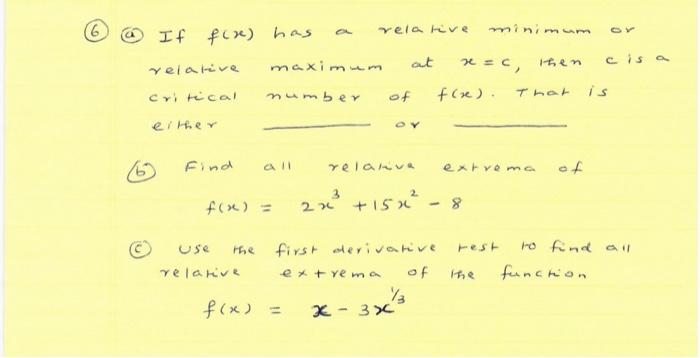 ⑥ ⓐ If f(x) has a relative minimum or
relative maximum at x = c, then c is a
critical number of f(x). That is
either ________ or ________
ⓑ Find all relative extrema of
f(x) = 2x³ + 15x² - 8
ⓒ Use the first derivative test to find all
relative extrema of the function
f(x) = x - 3x^1/3